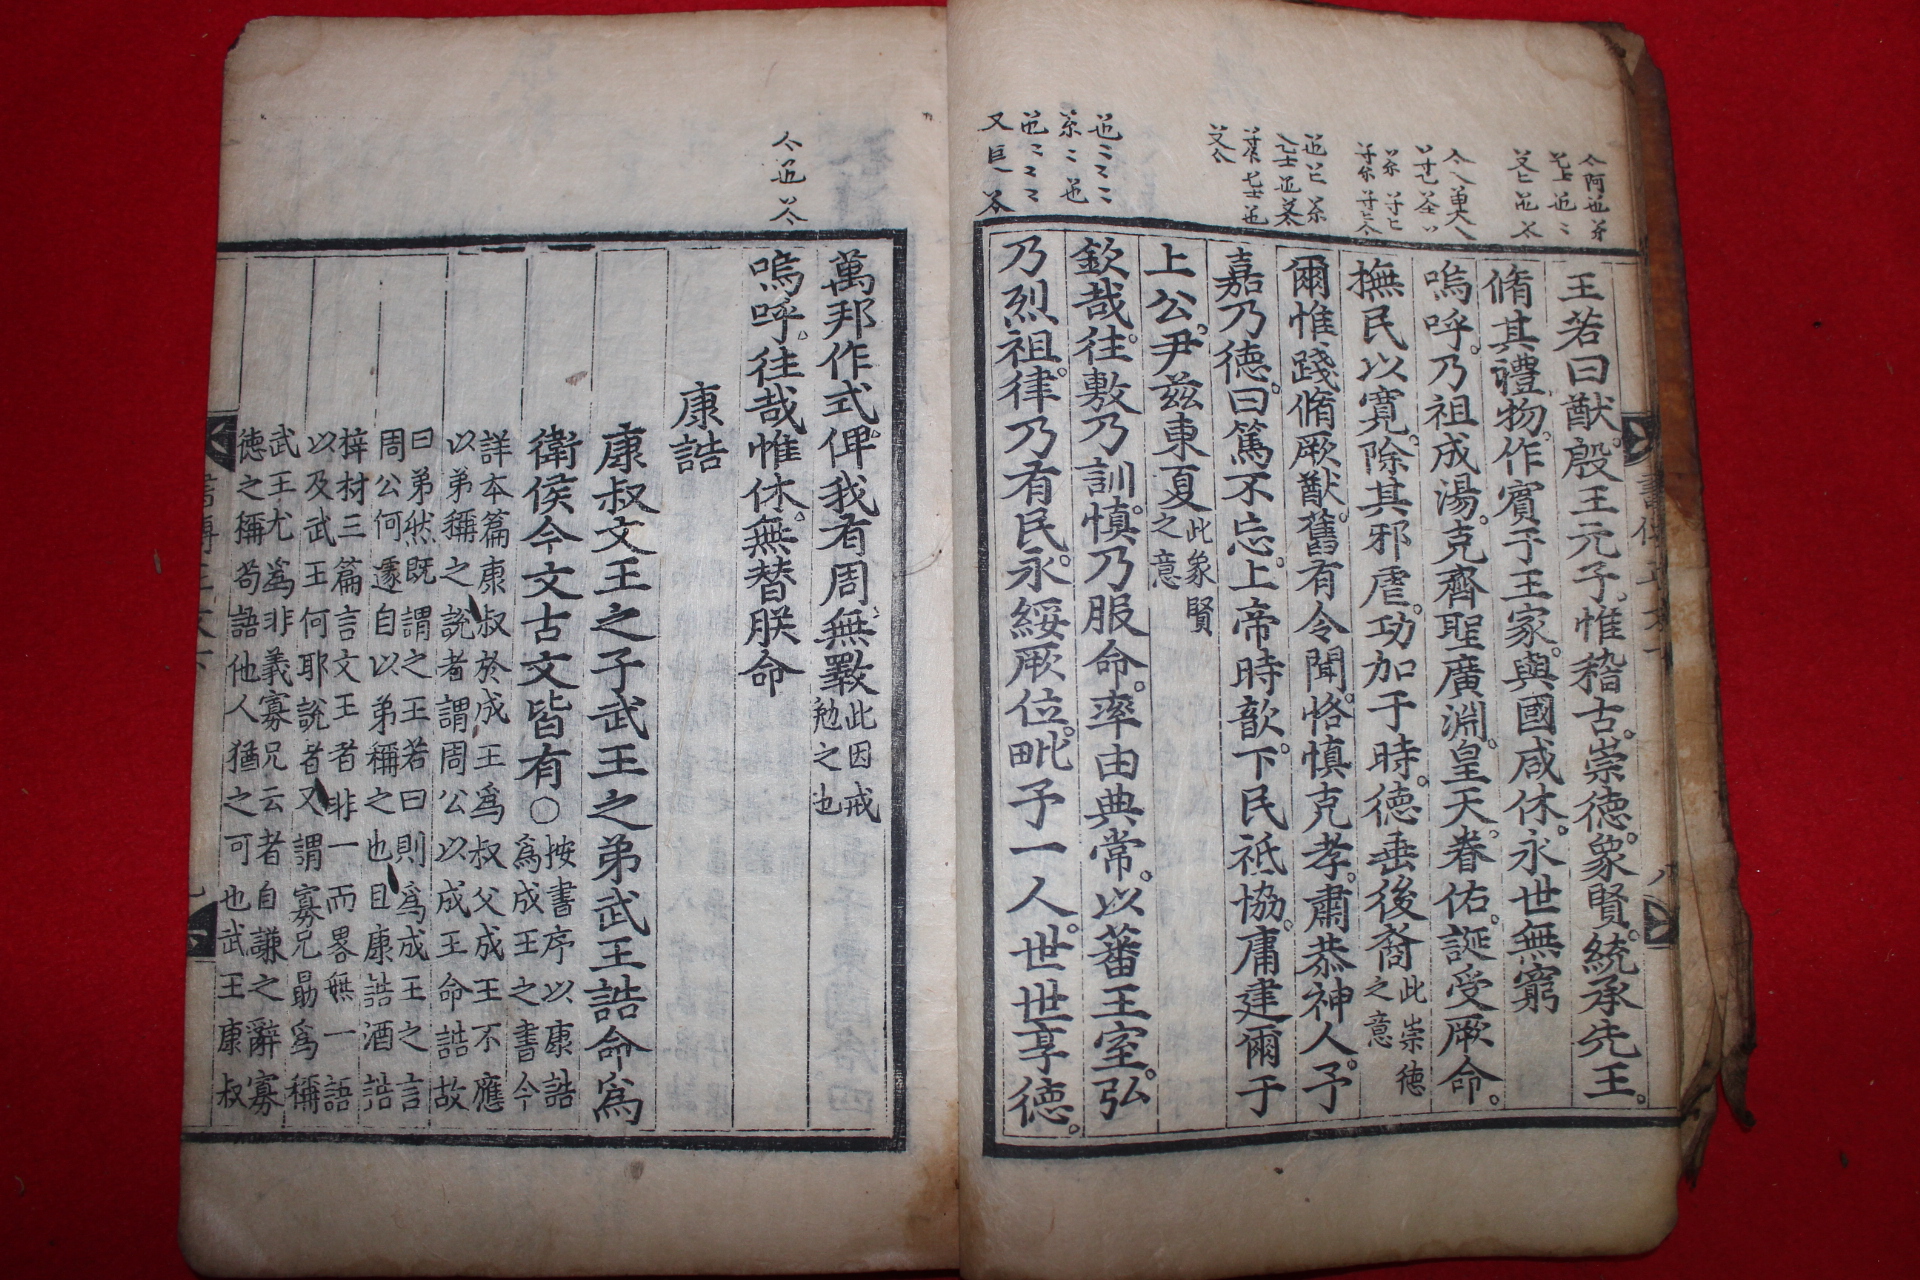 王若曰猷殷王元子惟稽古崇德象賢統承先王
脩其禮物作賓于王家與國咸休永世無窮
嗚呼乃祖成湯克齊聖廣淵皇天眷佑誕受厥命
撫民以寬除其邪虐功加于時德垂後裔此崇德之意
爾惟踐脩厥猷舊有令聞恪慎克孝肅恭神人予
嘉乃德曰篤不忘上帝時歆下民祗協庸建爾于
上公尹兹東夏此象賢之意
欽哉往敷乃訓慎乃服命率由典常以蕃王室弘
乃烈祖律乃有民永綏厥位毗予一人世世享德
萬邦作式俾我有周無斁此因戒勉之也
嗚呼往哉惟休無替朕命
康誥
康叔文王之子武王之弟武王誥命爲
衛侯今文古文皆有○按書序以康誥
爲成王之書今
詳本篇康叔於成王爲叔父成王不應
以弟稱之說者謂周公以成王命誥故
曰弟然既謂之王若曰則爲成王之言
周公何遽自以弟稱之也且康誥酒誥
梓材三篇言文王者非一而畧無一語
以及武王何耶說者又謂寡兄勗爲稱
武王尤爲非義寡兄云者自謙之辭寡
德之稱苟語他人猶之可也武王康叔